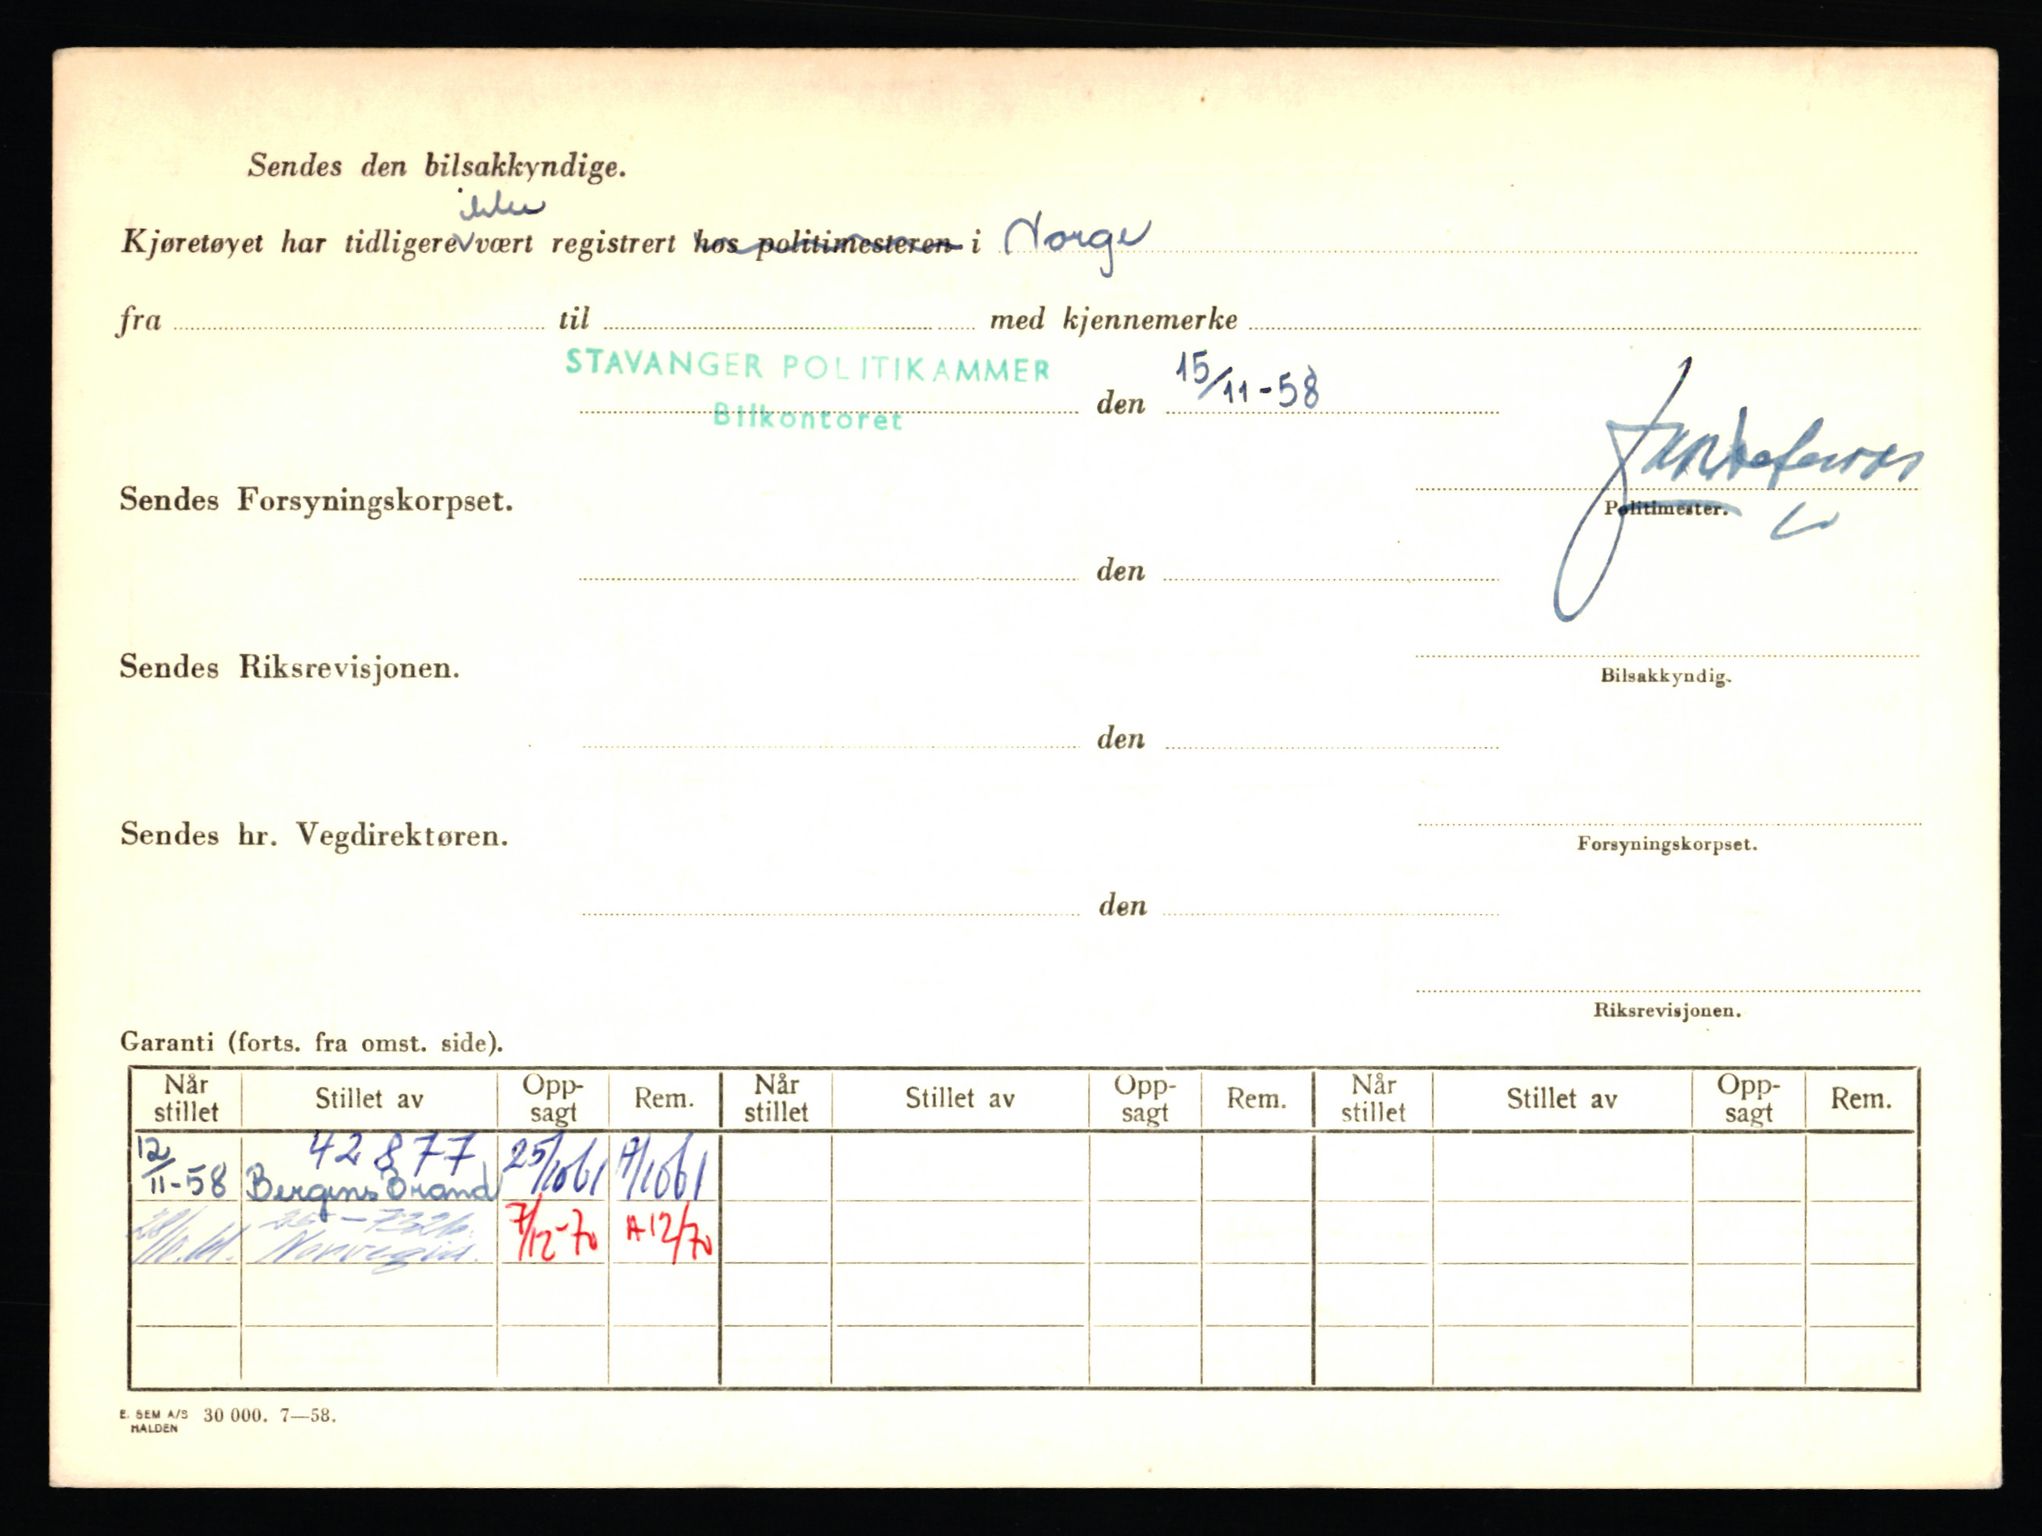 Sendes den bilsakkyndige.
ikke
Kjøretøyet har tidligere vært registrert hos politimesteren i Norge
fra til med kjennemerke
STAVANGER POLITIKAMMER
Bilkontoret
den 15/11-58
Sendes Forsyningskorpset.
Politimester.
den
Sendes Riksrevisjonen.
Bilsakkyndig.
den
Sendes hr. Vegdirektøren.
Forsyningskorpset.
den
Riksrevisjonen.
Garanti (forts. fra omst. side).
Når stillet Stillet av Opp-sagt Rem. Når stillet Stillet av Opp-sagt Rem. Når stillet Stillet av Opp-sagt Rem.
12/11-58 42877 Bergens Brand 25/1061 A/1061
Norvegia. 7/12-70 A12/70
E. SEM A/S HALDEN 30 000. 7—58.